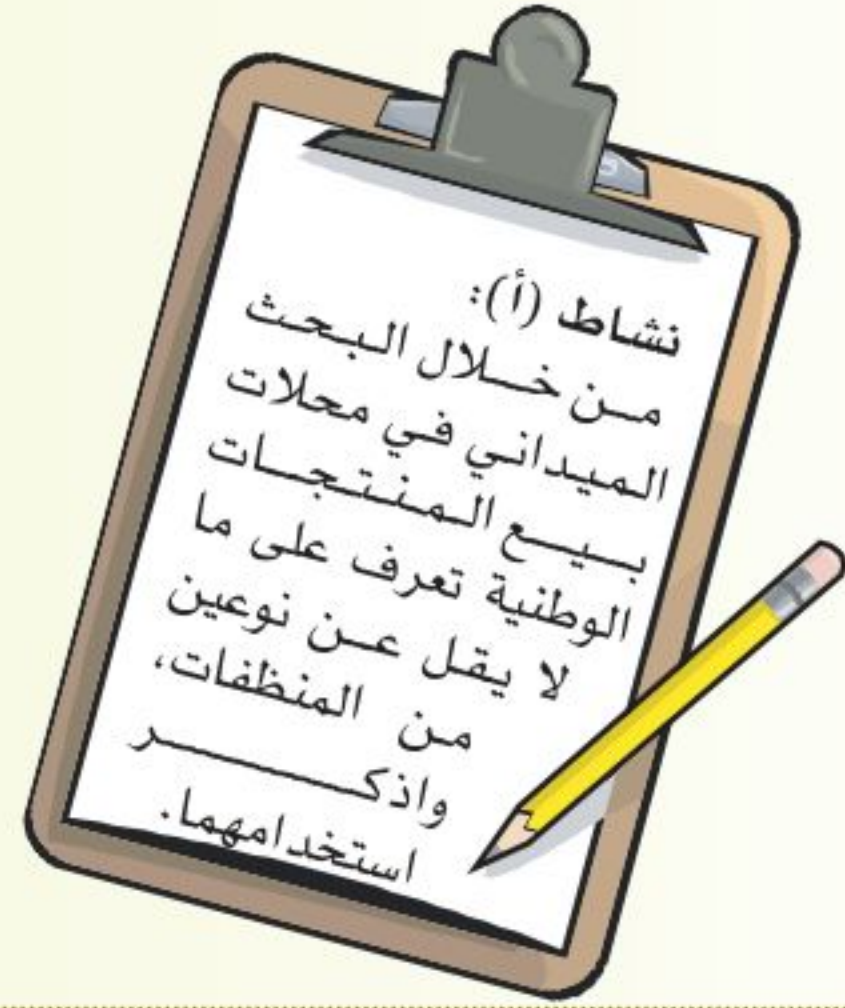 نشاط (أ):
من خلال البحث
الميداني في محلات
بيع المنتجات
الوطنية تعرف على ما
لا يقل عن نوعين
من المنظفات،
واذكر
استخدامهما.